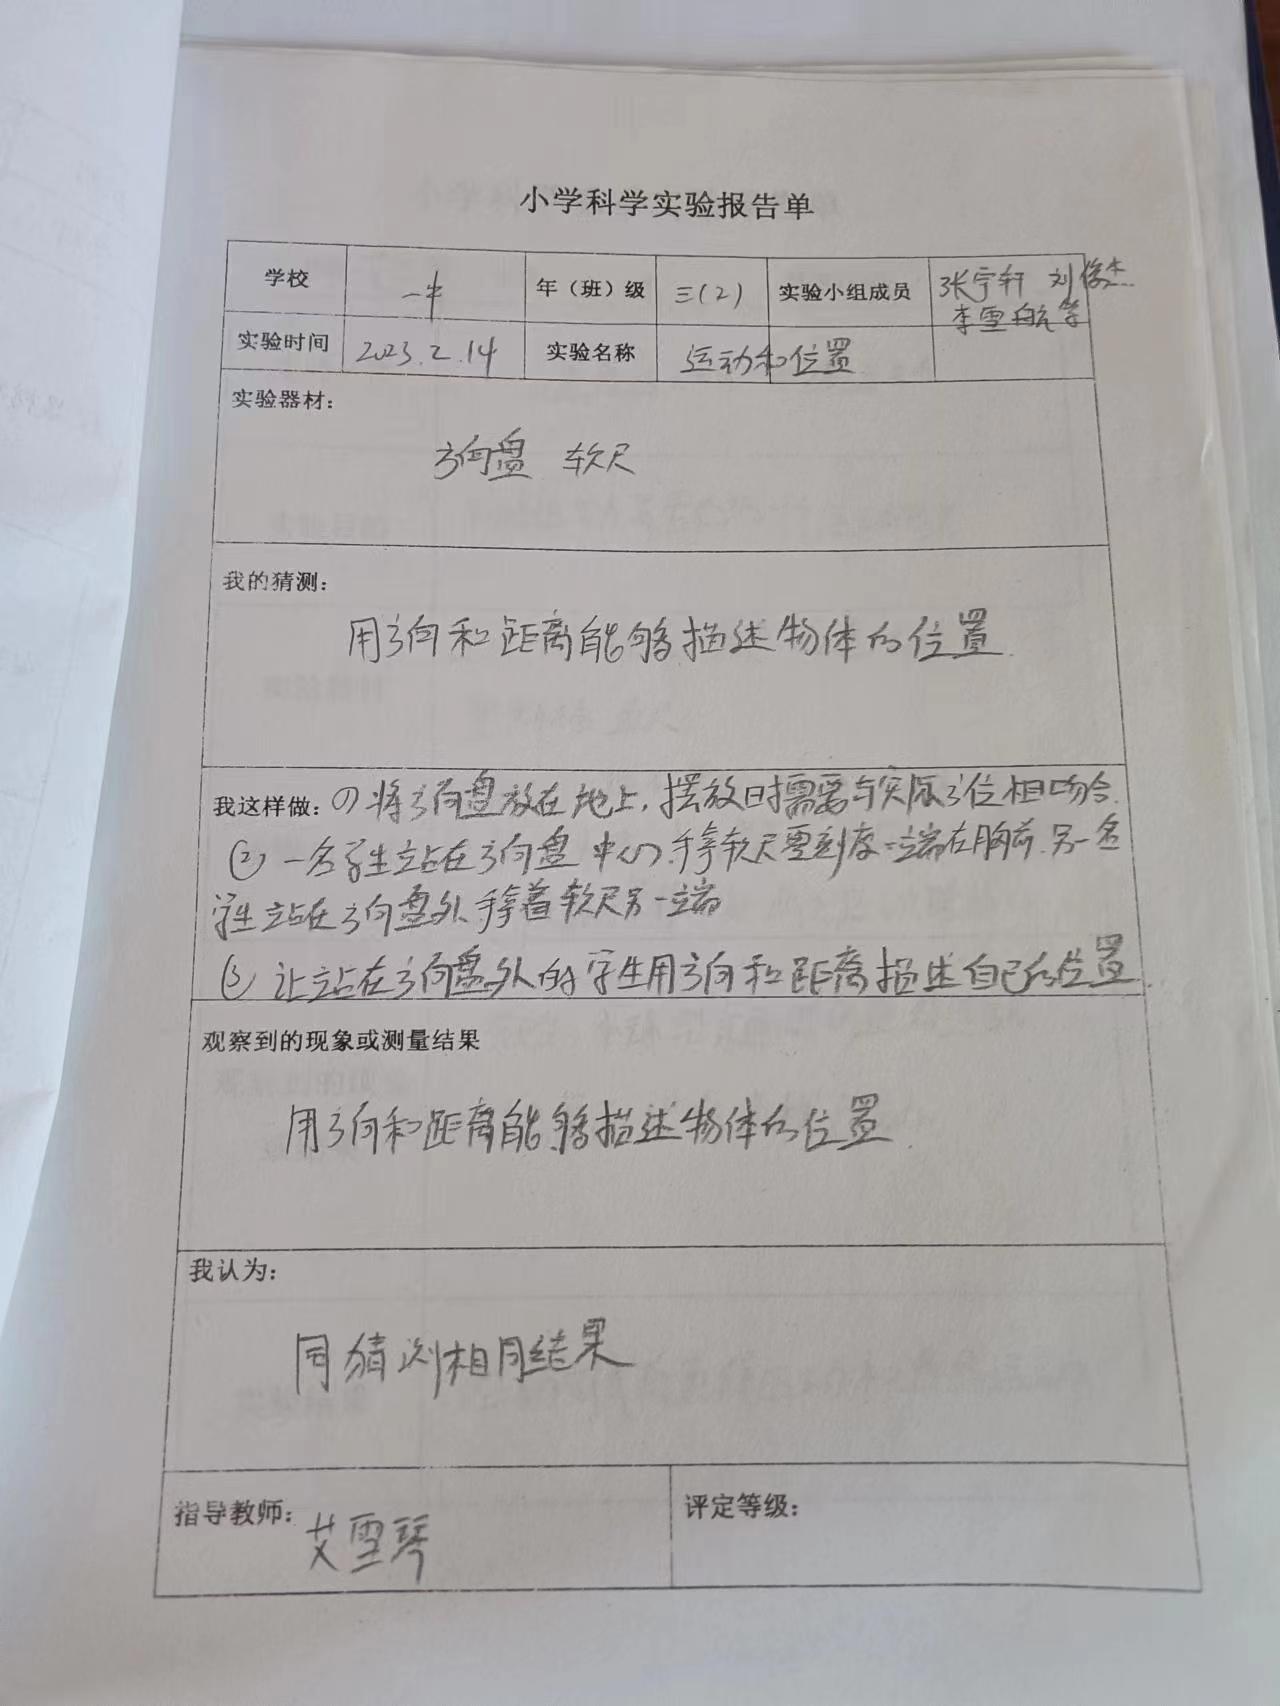 小学科学实验报告单
学校 一中 年（班）级 三(2) 实验小组成员 张宇轩 刘俊杰
李雪航等
实验时间 2023.2.14 实验名称 运动和位置
实验器材：
方向盘 软尺
我的猜测：
用方向和距离能够描述物体的位置.
我这样做：(1) 将方向盘放在地上，摆放时需要与实际方位相吻合.
(2) 一名学生站在方向盘中心，手拿软尺零刻度一端在胸前.另一名
学生站在方向盘外,手拿着软尺另一端
(3) 让站在方向盘外的学生用方向和距离描述自己的位置.
观察到的现象或测量结果
用方向和距离能够描述物体的位置.
我认为：
同猜测相同结果
指导教师： 艾雪琴 评定等级：